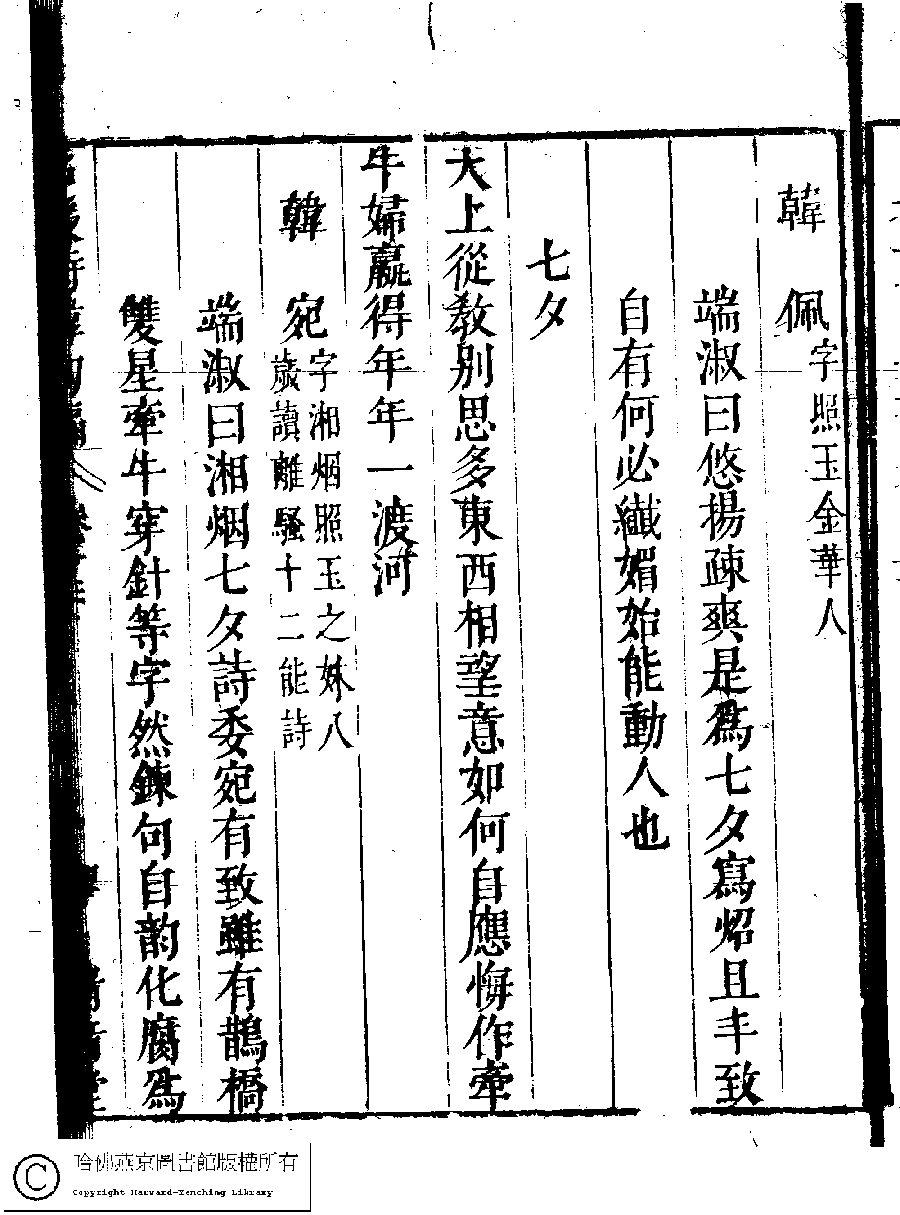 韓 佩字照玉金華人
端淑曰悠揚疎爽是爲七夕寫炤且丰致
自有何必纖媚始能動人也
七夕
天上從教別思多東西相望意如何自應悔作牽
牛婦贏得年年一渡河
韓 宛字湘烟照玉之妹八
歲讀離騷十二能詩
端淑曰湘烟七夕詩委宛有致雖有鵲橋
雙星牽牛穿針等字然鍊句自韵化腐爲
哈佛燕京圖書館版權所有
Copyright Harvard-Yenching Library